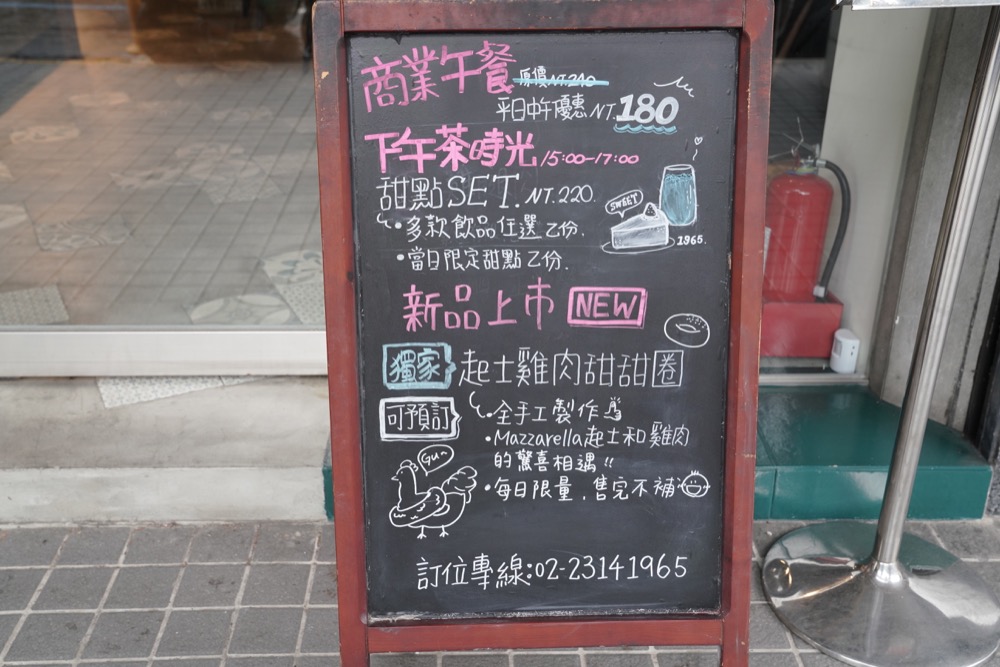 商業午餐 原價NT.240
平日中午優惠NT.180
下午茶時光 15:00-17:00
甜點SET. NT.220.
SWEET
•多款飲品任選乙份.
1965.
•當日限定甜點乙份.
新品上市 NEW
獨家 起士雞肉甜甜圈
可預訂 •全手工製作
•Mazzarella起士和雞肉
的驚喜相遇!!
Gu~
•每日限量,售完不補
訂位專線:02-23141965